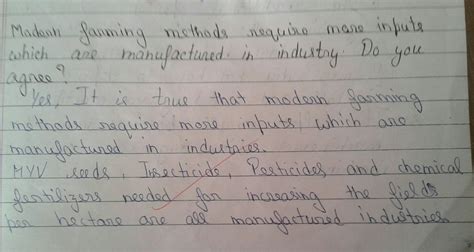 Modern farming methods require more inputs
which are manufactured in industry. Do you
agree?
Yes, It is true that modern farming
methods require more inputs which are
manufactured in industries.
MYV seeds, Insecticide, Pesticides and chemical
fertilizers needed for increasing the fields
per hectare are all manufactured industries.